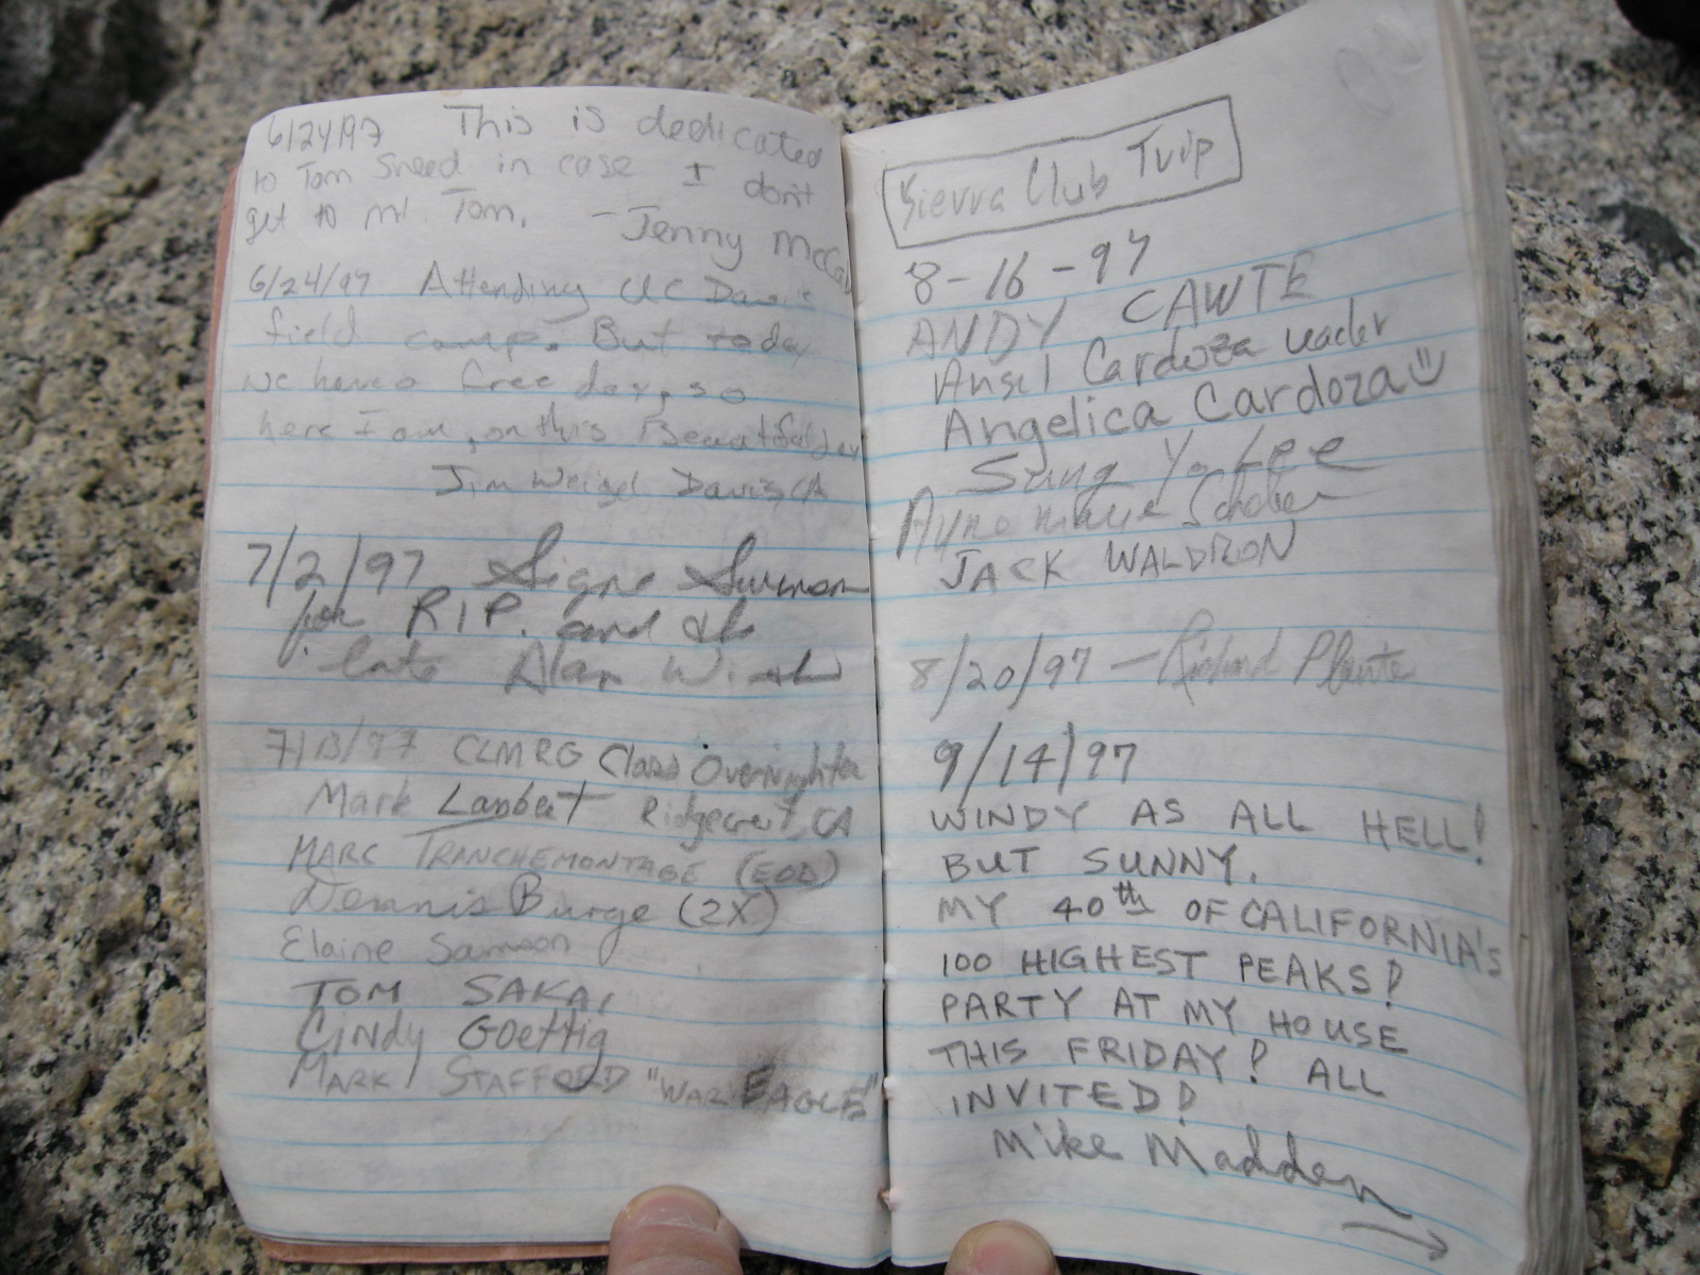 6/24/97 This is dedicated
to Tom Sneed in case I don't
get to Mt Tom. - Jenny
6/24/97 Attending UC Davis
field camp. But today
we have a free day, so
here I am, on this Beautiful day
Jim Weigel Davis, CA
7/2/97 Signe Swenson
for R.I.P. and
late Alan
7/13/97 CLMRG Class Overnighter
Mark Lambert Ridgecrest, CA
MARC TRANCHEMONTAGE (EOD)
Dennis Burge (2X)
Elaine Samson
TOM SAKAI
Cindy Goettig
MARK STAFFORD "WAR EAGLE"
Sierra Club Trip
8-16-97
ANDY CAWTE
Ansel Cardoza leader
Angelica Cardoza
Sung Yo Lee
JACK WALDRON
8/20/97 — Richard Plante
9/14/97
WINDY AS ALL HELL!
BUT SUNNY.
MY 40th OF CALIFORNIA'S
100 HIGHEST PEAKS!
PARTY AT MY HOUSE
THIS FRIDAY! ALL
INVITED!
Mike Madden